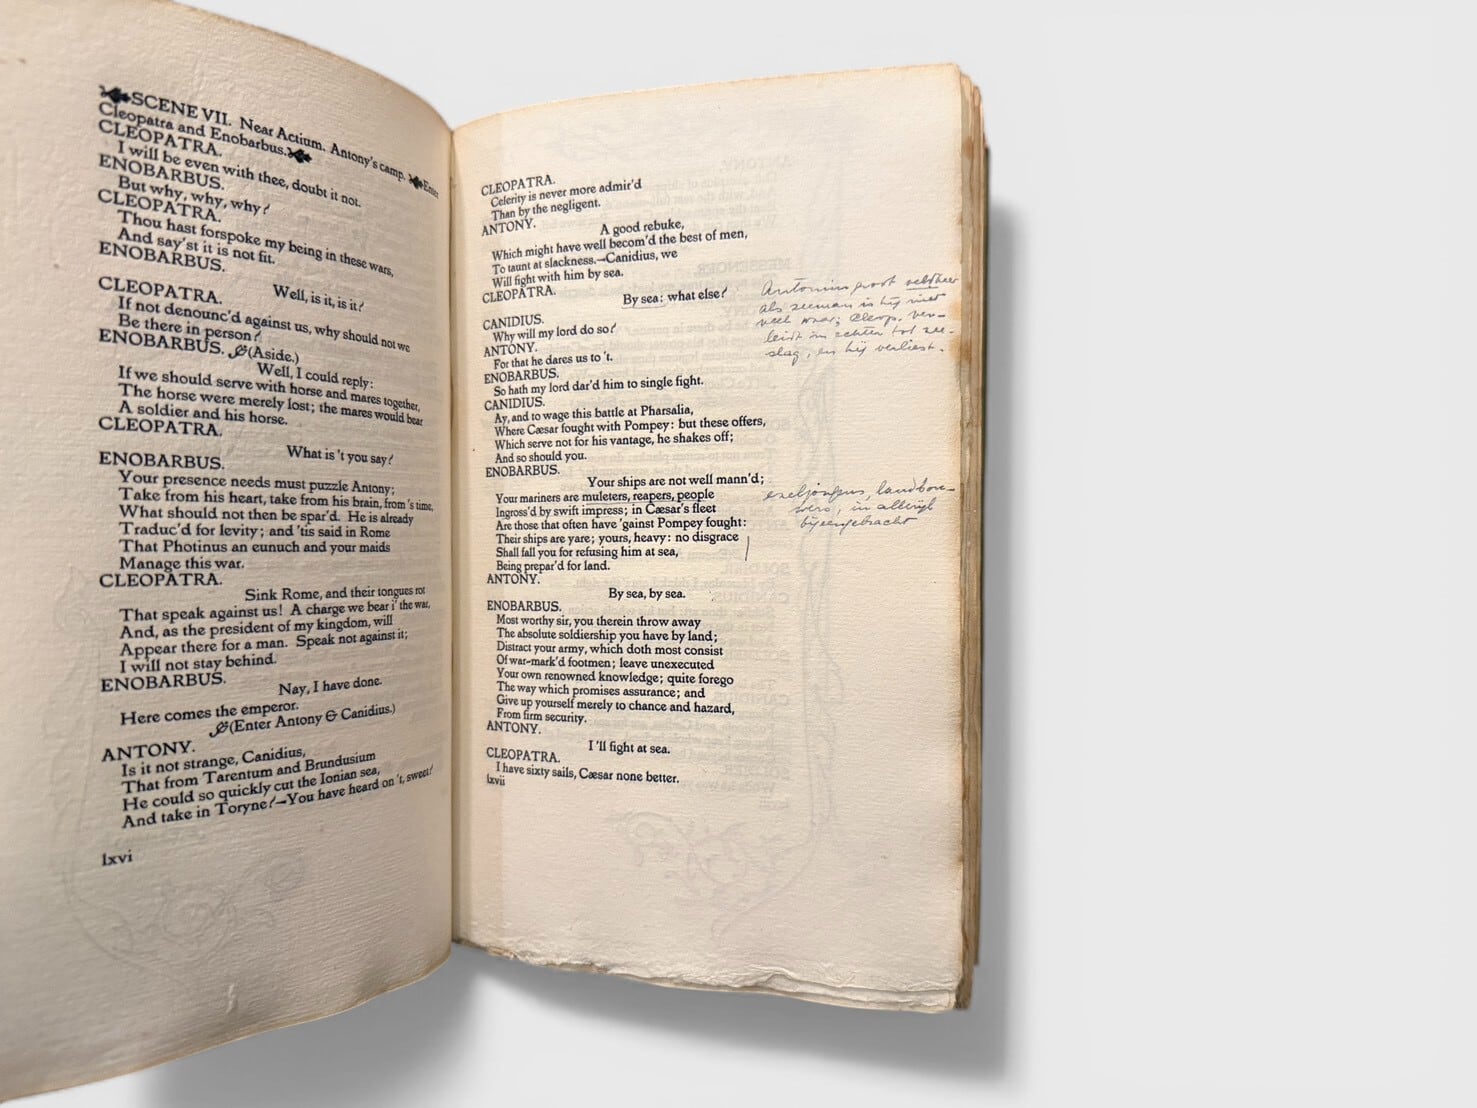 SCENE VII. Near Actium. Antony's camp. Enter
Cleopatra and Enobarbus.
CLEOPATRA.
I will be even with thee, doubt it not.
ENOBARBUS.
But why, why, why?
CLEOPATRA.
Thou hast forspoke my being in these wars,
And say'st it is not fit.
ENOBARBUS.
Well, is it, is it?
CLEOPATRA.
If not denounc'd against us, why should not we
Be there in person?
ENOBARBUS. (Aside.)
Well, I could reply:
If we should serve with horse and mares together,
The horse were merely lost; the mares would bear
A soldier and his horse.
CLEOPATRA.
What is 't you say?
ENOBARBUS.
Your presence needs must puzzle Antony;
Take from his heart, take from his brain, from 's time,
What should not then be spar'd. He is already
Traduc'd for levity; and 'tis said in Rome
That Photinus an eunuch and your maids
Manage this war.
CLEOPATRA.
Sink Rome, and their tongues rot
That speak against us! A charge we bear i' the war,
And, as the president of my kingdom, will
Appear there for a man. Speak not against it;
I will not stay behind.
ENOBARBUS.
Nay, I have done.
Here comes the emperor.
(Enter Antony & Canidius.)
ANTONY.
Is it not strange, Canidius,
That from Tarentum and Brundusium
He could so quickly cut the Ionian sea,
And take in Toryne?—You have heard on 't, sweet?
lxvi
CLEOPATRA.
Celerity is never more admir'd
Than by the negligent.
ANTONY.
A good rebuke,
Which might have well becom'd the best of men,
To taunt at slackness.—Canidius, we
Will fight with him by sea.
CLEOPATRA.
By sea: what else?
CANIDIUS.
Why will my lord do so?
ANTONY.
For that he dares us to 't.
ENOBARBUS.
So hath my lord dar'd him to single fight.
CANIDIUS.
Ay, and to wage this battle at Pharsalia,
Where Cæsar fought with Pompey: but these offers,
Which serve not for his vantage, he shakes off;
And so should you.
ENOBARBUS.
Your ships are not well mann'd;
Your mariners are muleters, reapers, people
Ingross'd by swift impress; in Cæsar's fleet
Are those that often have 'gainst Pompey fought:
Their ships are yare; yours, heavy: no disgrace
Shall fall you for refusing him at sea,
Being prepar'd for land.
ANTONY.
By sea, by sea.
ENOBARBUS.
Most worthy sir, you therein throw away
The absolute soldiership you have by land;
Distract your army, which doth most consist
Of war-mark'd footmen; leave unexecuted
Your own renowned knowledge; quite forego
The way which promises assurance; and
Give up yourself merely to chance and hazard,
From firm security.
ANTONY.
I 'll fight at sea.
CLEOPATRA.
I have sixty sails, Cæsar none better.
lxvii
Antonius groot veldheer
als zeeman is hij niet
veel waar; Cleop. ver-
leidt m echter tot zee-
slag, en hij verliest.
ezeljongens, landbou-
wers, in allerijl
bijeengebracht